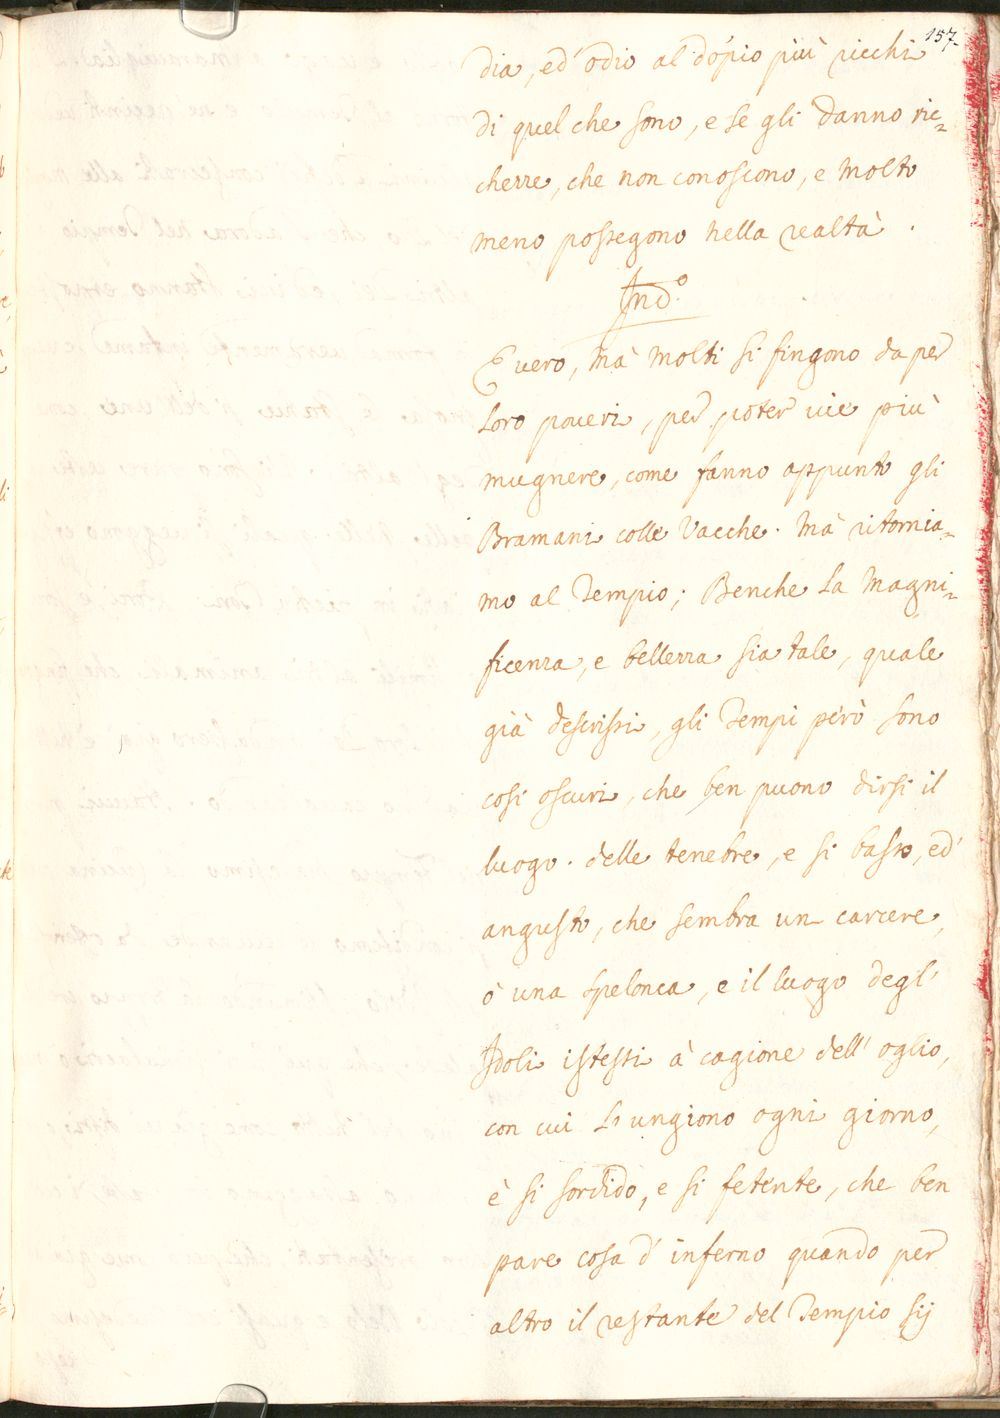 157.
dia, ed' odio al dopio più ricchi
di quel che sono, e se gli danno ric=
chezze, che non conoscono, e molto
meno possegono nella realtà.
Ind.º
È vero, mà molti si fingono da per
loro poueri, per poter uie più
mugnere, come fanno appunto gli
Bramani colle Vacche. Mà ritornia=
mo al Tempio; Benche la Magni=
ficenza, e bellezza sia tale, quale
già descrissi, gli Tempi però sono
cosi oscuri, che ben puono dirsi il
luogo. delle tenebre, e si basso, ed'
angusto, che sembra un carcere,
ò una spelonca, e il luogo degl'
Idoli istessi à cagione dell' oglio,
con cui li ungiono ogni giorno,
è si sordido, e si fetente, che ben
pare cosa d' inferno quando per
altro il restante del Tempio sij